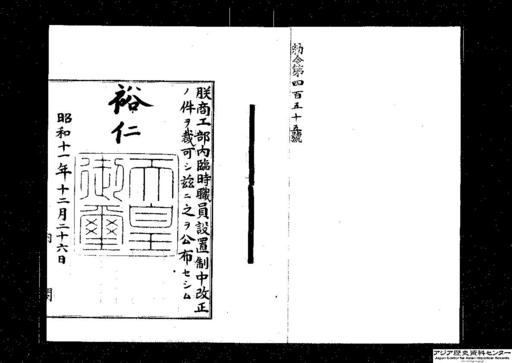 勅令第四百五十五號
朕商工部內臨時職員設置制中改正
ノ件ヲ裁可シ茲ニ之ヲ公布セシム
裕仁
天皇御璽
昭和十一年十二月二十六日
内閣
アジア歴史資料センター
Japan Center for Asian Historical Records